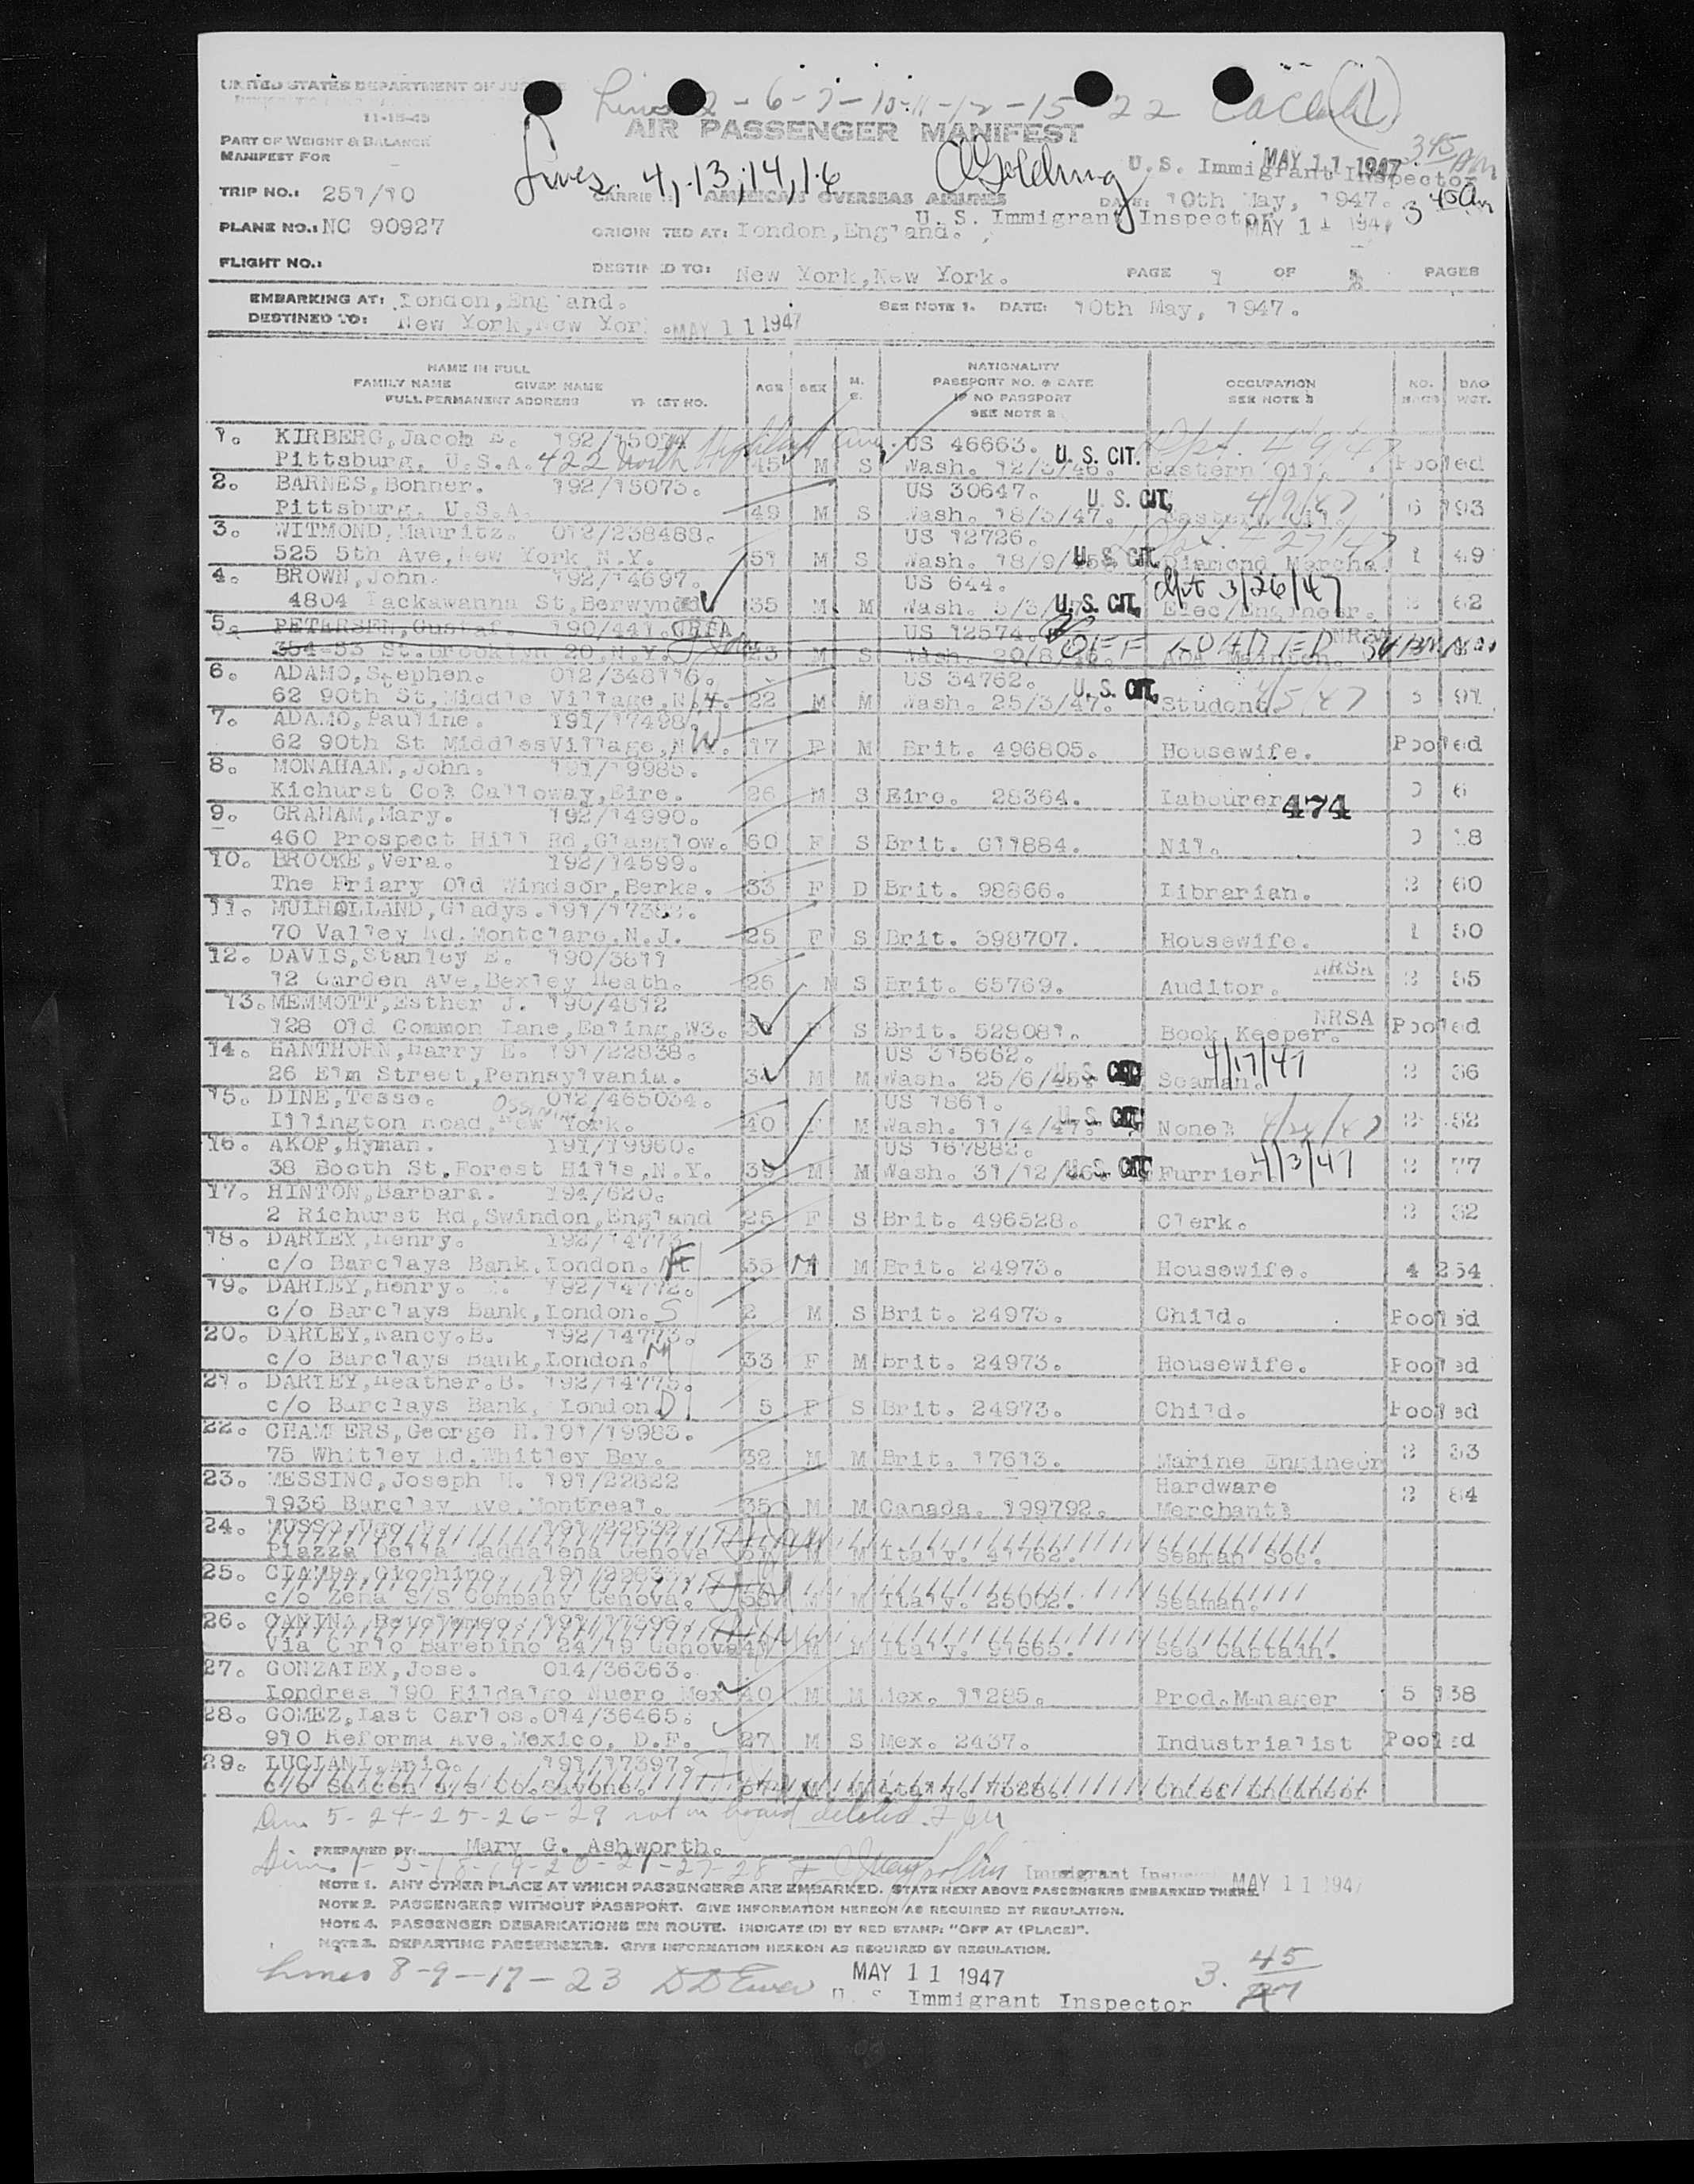 UNITED STATES DEPARTMENT OF JUSTICE
11-15-45
Lines 2-6-7-10-11-12-15-22
AIR PASSENGER MANIFEST
PART OF WEIGHT & BALANCE
MANIFEST FOR
Lines. 4, 13, 14, 16
U.S. Immigrant Inspector
MAY 11 1947 3 45 AM
TRIP NO.: 251/10
AMERICAN OVERSEAS AIRLINES
DATE: 10th May, 1947. 3 45 am
U. S. Immigrant Inspector
MAY 11 1947
PLANE NO.: NC 90927
ORIGINATED AT: London, England.
FLIGHT NO.:
DESTINED TO: New York, New York.
PAGE 1 OF PAGES
EMBARKING AT: London, England.
SEE NOTE 1. DATE: 10th May, 1947.
DESTINED TO: New York, New York. MAY 11 1947
NAME IN FULL
FAMILY NAME GIVEN NAME
FULL PERMANENT ADDRESS TICKET NO.
AGE SEX M. S.
NATIONALITY
PASSPORT NO. & DATE
IF NO PASSPORT
SEE NOTE 2
OCCUPATION
SEE NOTE 3
NO. BAGS
BAG WGT.
1. KIRBERG, Jacob E. 192/15074 US 46663. U. S. CIT. Dpt. 4 9 47
Pittsburg, U.S.A. 422 North Highland Ave. 45 M S Wash. 12/3/46. Eastern Oil. Pooled
2. BARNES, Bonner. 192/15073. US 30647. U. S. CIT. 4/9/47
Pittsburg, U.S.A. 49 M S Wash. 18/3/47. Eastern Oil. 6 193
3. WITMOND, Mauritz. 012/238488. US 12726.
525 5th Ave, New York, N.Y. 51 M S Wash. 18/9/ U. S. CIT. Diamond Mercha. 1 49
4. BROWN, John. 192/14697. US 644. dpt 3/26/47
4804 Lackawanna St, Berwyn 35 M M Wash. U. S. CIT. Elec/Engineer. 62
5. PETERSEN, Gustaf. 190/441. US 12574. OFF LOADED NRSA
354-53 St. Brooklyn 20, N.Y. 43 M S Wash. 20/8/46.
6. ADAMO, Stephen. 012/348116. US 34762. U. S. CIT.
62 90th St, Middle Village, N.Y. 22 M M Wash. 25/3/47. Student. 4/5/47 3 91
7. ADAMO, Pauline. 191/17498. W
62 90th St Middles Village, N.Y. 17 F M Brit. 496805. Housewife. Pooled
8. MONAHAAN, John. 191/19985.
Kichurst Co Calloway, Eire. 26 M S Eire. 28364. Labourer 474 6
9. GRAHAM, Mary. 192/14990.
460 Prospect Hill Rd, Glasglow. 60 F S Brit. G11884. Nil. 18
10. BROOKE, Vera. 192/14599.
The Friary Old Windsor, Berks. 33 F D Brit. 98866. Librarian. 2 60
11. MULHOLLAND, Gladys. 191/1738
70 Valley Rd, Montclare, N.J. 25 F S Brit. 398707. Housewife. 1 50
12. DAVIS, Stanley E. 190/3811 NRSA
12 Garden Ave, Bexley Heath. 26 M S Brit. 65769. Auditor. 2 55
13. MEMMOTT, Esther J. 190/4812 NRSA
128 Old Common Lane, Ealing, W3. F S Brit. 528081. Book Keeper. Pooled
14. HANTHORN, Harry E. 191/22838. US 315662. 4/17/47
26 Elm Street, Pennsylvania. 34 M M Wash. 25/6/45. U. S. CIT. Seaman. 2 36
15. DINE, Tesse. 012/465034. US 1861.
Illington Road, New York. OSSINING 40 F M Wash. 11/4/47. U. S. CIT. None 4/24/47 2 52
16. AKOP, Hyman. 191/19960. US 167882.
38 Booth St, Forest Hills, N.Y. 39 M M Wash. 31/12/46 U. S. CIT Furrier 4/3/47 2 77
17. HINTON, Barbara. 194/620.
2 Richurst Rd, Swindon, England 25 F S Brit. 496528. Clerk. 2 32
18. DARLEY, Henry. 192/14773
c/o Barclays Bank, London. 35 M M Brit. 24973. Housewife. 4 254
19. DARLEY, Henry. 192/14772.
c/o Barclays Bank, London. S 2 M S Brit. 24973. Child. Pooled
20. DARLEY, Nancy. B. 192/14773.
c/o Barclays Bank, London. M 33 F M Brit. 24973. Housewife. Pooled
21. DARLEY, Heather. B. 192/14775.
c/o Barclays Bank, London. D 5 F S Brit. 24973. Child. Pooled
22. CHAMBERS, George H. 191/19983.
75 Whitley Rd, Whitley Bay. 32 M M Brit. 17613. Marine Engineer 2 33
23. MESSING, Joseph H. 191/22822 Hardware
1936 Barclay Ave, Montreal. 35 M M Canada. 199792. Merchant 2 84
24. MUSSO,
Piazza Della Maddalena Genova M M Italy. 41762. Seaman Soc.
25. CIAMPA, Giochino.
c/o Zena S/S Company Genova. M M Italy. 25002. Seaman.
26. CANINA, 191/17396.
Via Carlo Barabino 24/19 Genova M M Italy. 91665. Sea Captain.
27. GONZALEX, Jose. 014/36363.
Londres 190 Hildalgo Nuero Mex 40 M M Mex. 11285. Prod. Manager 5 138
28. GOMEZ, Last Carlos. 014/36465.
910 Reforma Ave, Mexico, D.F. 27 M S Mex. 2437. Industrialist Pooled
29. LUCIANI, 191/17397.
Chief Engineer
5-24-25-26-29 not on board deleted.
PREPARED BY: Mary G. Ashworth.
Immigrant Inspector MAY 11 1947
NOTE 1. ANY OTHER PLACE AT WHICH PASSENGERS ARE EMBARKED. STATE NEXT ABOVE PASSENGERS EMBARKED THERE.
NOTE 2. PASSENGERS WITHOUT PASSPORT. GIVE INFORMATION HEREON AS REQUIRED BY REGULATION.
NOTE 4. PASSENGER DEBARKATIONS EN ROUTE. INDICATE (D) BY RED STAMP: "OFF AT (PLACE)".
NOTE 3. DEPARTING PASSENGERS. GIVE INFORMATION HEREON AS REQUIRED BY REGULATION.
Lines 8-9-17-23 MAY 11 1947 3. 45
U. S. Immigrant Inspector